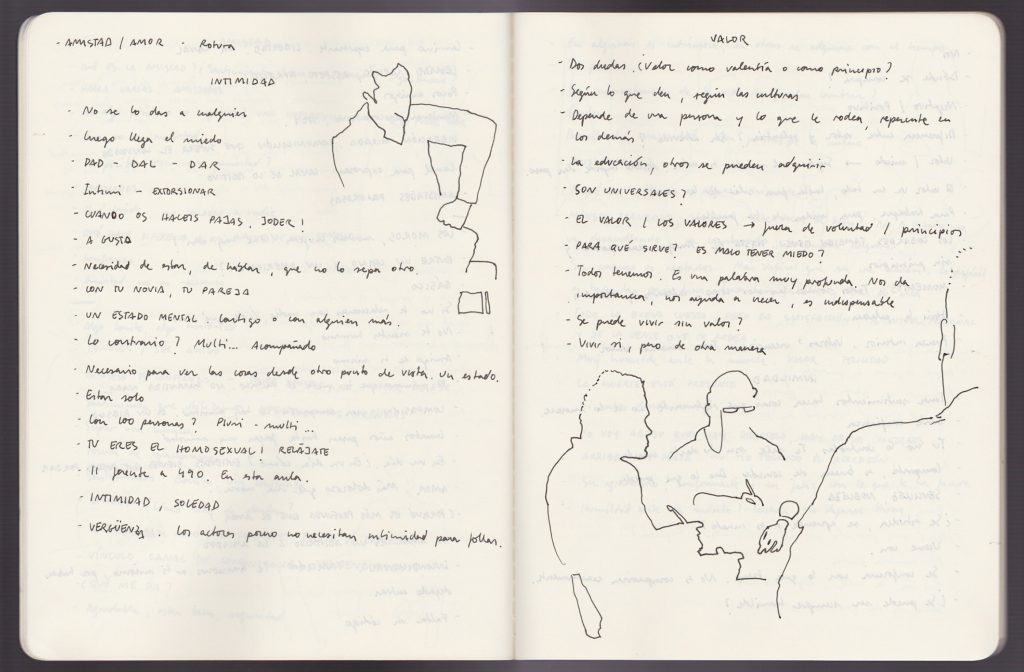 - AMISTAD / AMOR - Rotura
INTIMIDAD
- No se lo das a cualquiera
- Luego llega el miedo
- DAD - DAL - DAR
- Intimi - EXTORSIONAR
- CUANDO OS HACEIS PAJAS, JODER!
- A GUSTO
- Necesidad de estar, de hablar, que no lo sepa otro.
- CON TU NOVIA, TU PAREJA
- UN ESTADO MENTAL. Contigo o con alguien más.
- Lo contrario? Multi... Acompañado
- Necesario para ver las cosas desde otro punto de vista. Un estado.
- Estar solo
- Con 100 personas? Pluri - multi...
- TU ERES EL HOMOSEXUAL! RELÁJATE
- 11 frente a 490. En esta aula.
- INTIMIDAD, SOLEDAD
- VERGÜENZA. Los actores porno no necesitan intimidad para follar.
VALOR
- Dos dudas. (Valor como valentía o como principio?
- Según lo que den, según las culturas
- Depende de una persona y lo que le rodea, repercute en
los demás
- La educación, otros se pueden adquirir
- SON UNIVERSALES?
- EL VALOR / LOS VALORES → fuerza de voluntad / principios
- PARA QUÉ SIRVE? ES MALO TENER MIEDO?
- Todos tenemos. Es una palabra muy profunda. Nos da
importancia, nos ayuda a crecer, es indispensable
- Se puede vivir sin valor?
- Vivir si, pero de otra manera